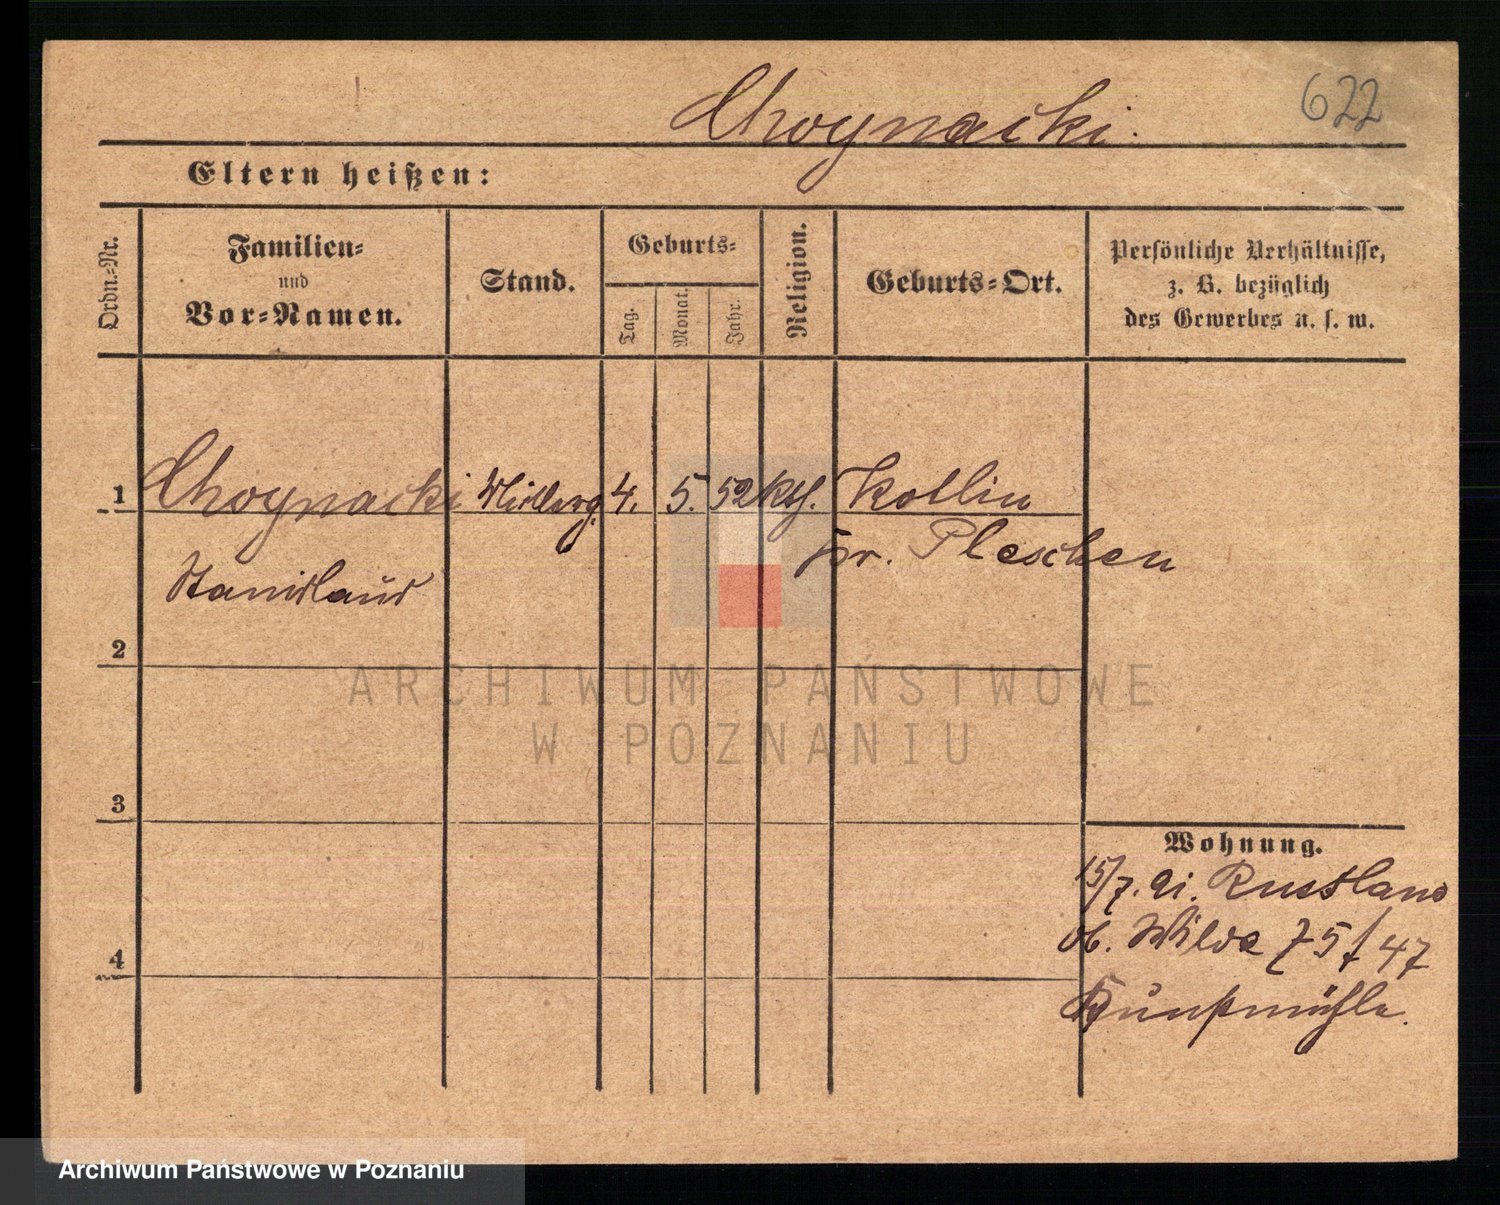 622
Choynacki.
Eltern heißen:
Ordn.-Nr.
Familien-
und
Vor-Namen.
Stand.
Geburts-
Tag.
Monat.
Jahr.
Religion.
Geburts-Ort.
Persönliche Verhältnisse,
z. B. bezüglich
des Gewerbes u. s. w.
1 Choynacki 4. 5. 52 kth. Kotlin
Kr. Pleschen
Stanislaus
2
ARCHIWUM PAŃSTWOWE
W POZNANIU
3
Wohnung.
15/7. Russland
ob. Wilda 75 / 47
Kunstmühle.
4
Archiwum Państwowe w Poznaniu